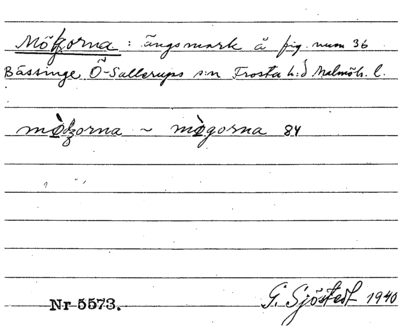 Mötzorna: ängsmark å fig. num 36
Bässinge, Ö-Sallerups s:n Frosta h:d Malmöh. l.
mòtzorna ~ mògorna 84
Nr 5573. G. Sjöstedt 1940